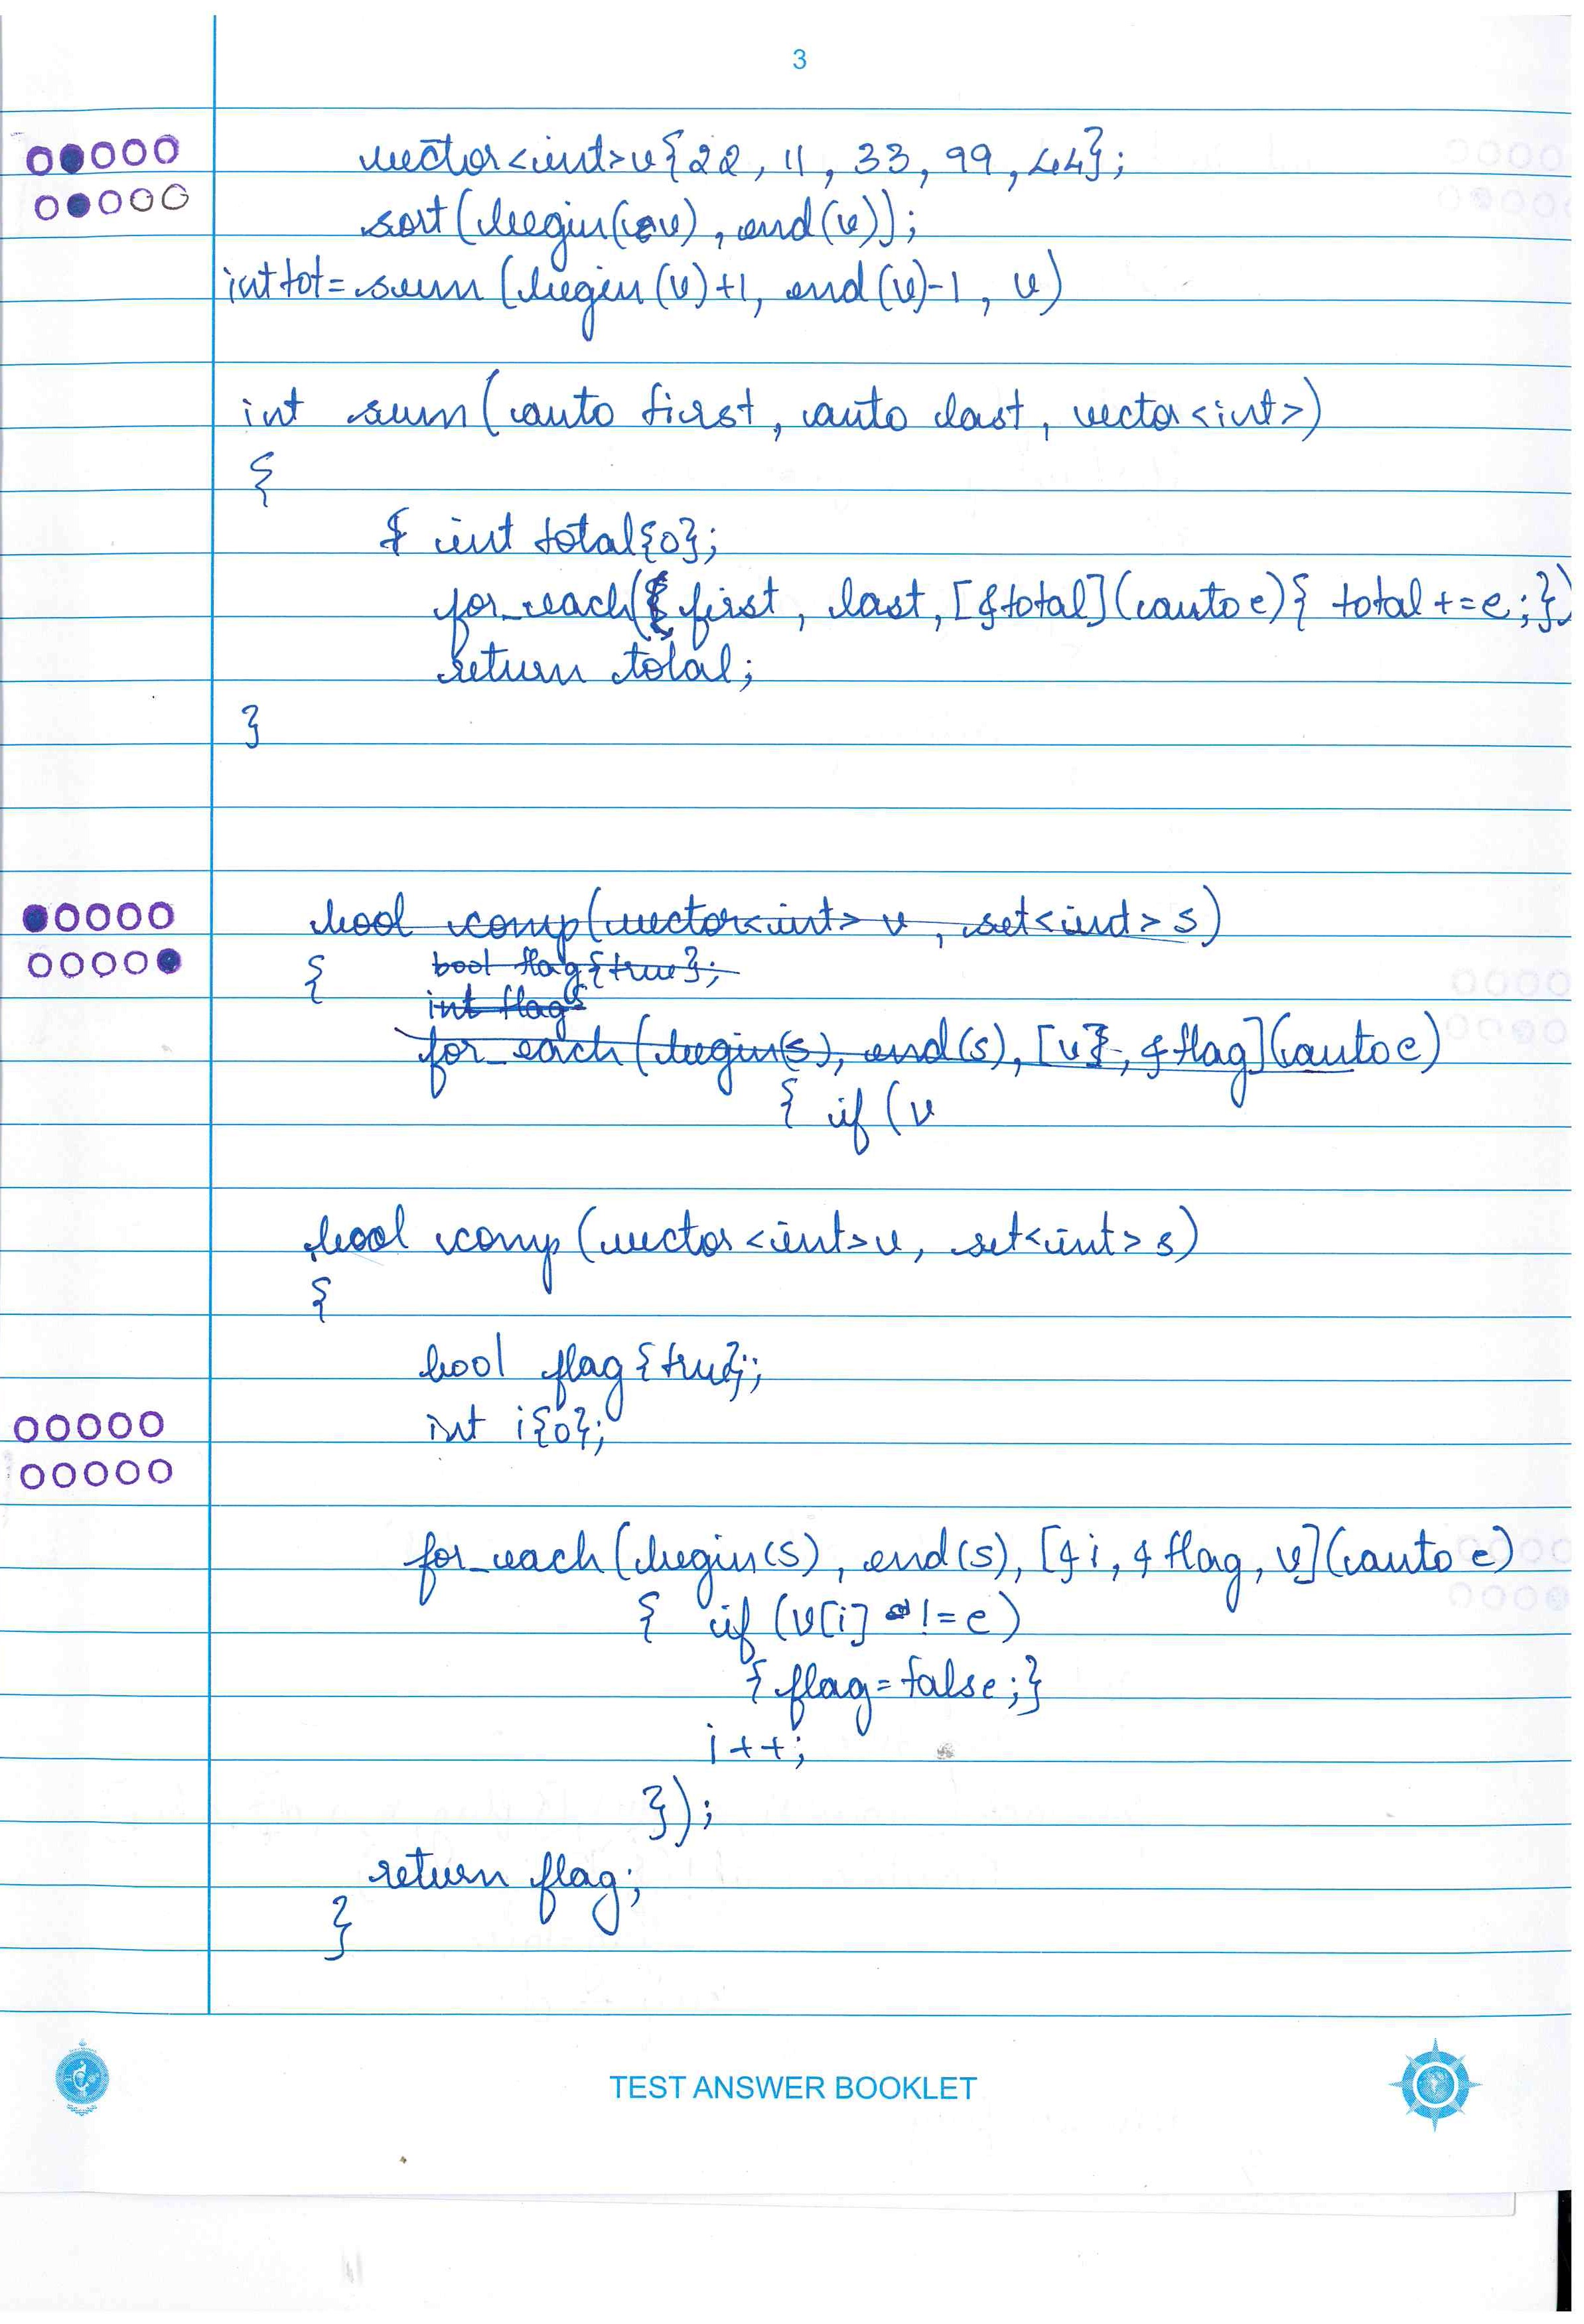 3
vector<int>v{22, 11, 33, 99, 44};
sort(begin(v), end(v));
int tot = sum(begin(v)+1, end(v)-1, v)
int sum(auto first, auto last, vector<int>)
{
int total{0};
for_each(first, last, [&total](auto e){ total+=e;})
return total;
}
bool comp(vector<int> v, set<int> s)
{ bool flag{true};
int flag
for_each(begin(s), end(s), [v], &flag](auto e)
{ if (v
bool comp(vector<int>v, set<int> s)
{
bool flag{true};
int i{0};
for_each(begin(s), end(s), [&i, &flag, v](auto e)
{ if (v[i] != e)
{ flag=false;}
i++;
});
return flag;
}
TEST ANSWER BOOKLET